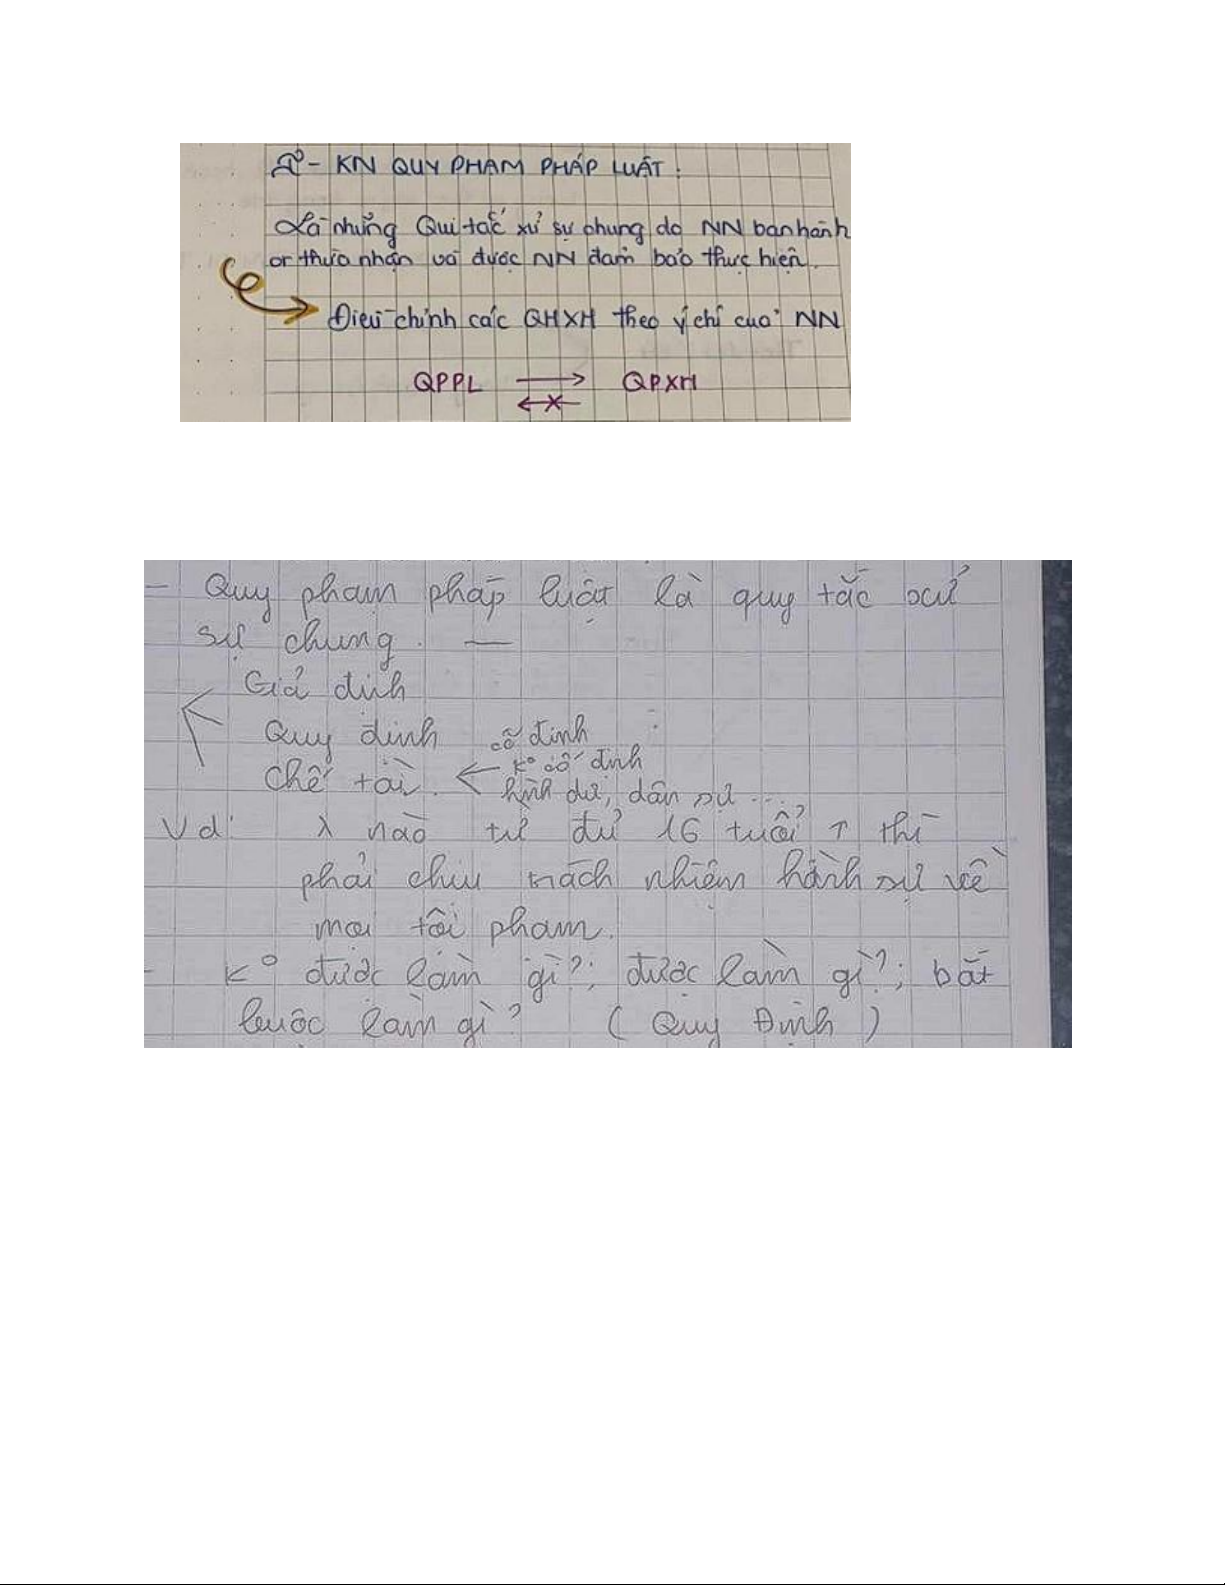 2 - KN QUY PHẠM PHÁP LUẬT:
Là những Qui tắc xử sự chung do NN ban hành
or thừa nhận và được NN đảm bảo thực hiện.
Điều chỉnh các QHXH theo ý chí của NN
QPPL → QPXH
- Quy phạm pháp luật là quy tắc xử
sự chung. —
Giả định
Quy định
cố định
Chế tài. ko cố định
hình sự, dân sự ....
Vd: nào từ đủ 16 tuổi ↑ thì
phải chịu trách nhiệm hành sự về
mọi tội phạm.
- ko được làm gì?; được làm gì?; bắt
buộc làm gì? (Quy Định)